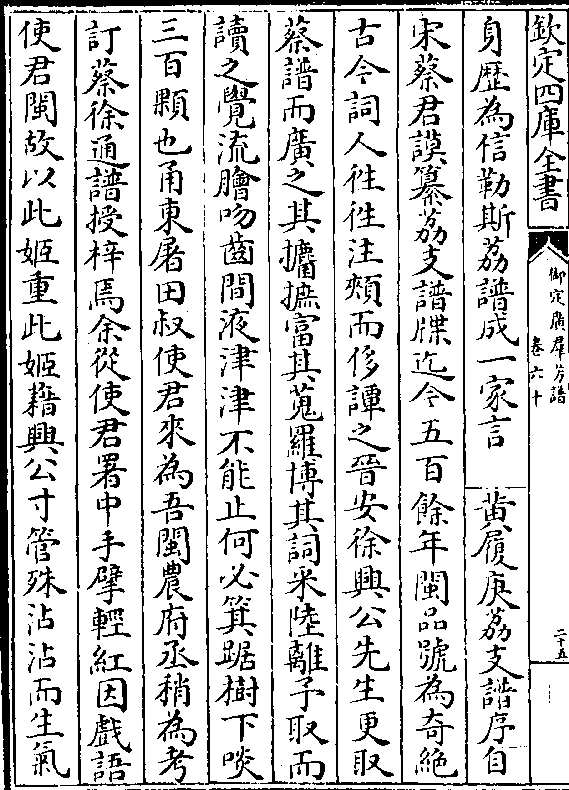 欽定四庫全書
御定廣群芳譜
卷六十
二十五
身歴為信勒斯荔譜成一家言 黄履庚荔支譜序自
宋蔡君謨纂荔支譜牒迄今五百餘年閩品號為奇絶
古今詞人徃徃注頰而侈譚之晉安徐興公先生更取
蔡譜而廣之其攟摭富其蒐羅博其詞采陸離予取而
讀之覺流膾吻齒間液津津不能止何必箕踞樹下啖
三百顆也甬東屠田叔使君來為吾閩農府丞稍為考
訂蔡徐通譜授梓焉余從使君署中手擘輕紅因戲語
使君閩故以此姬重此姬藉興公寸管殊沾沾而生氣